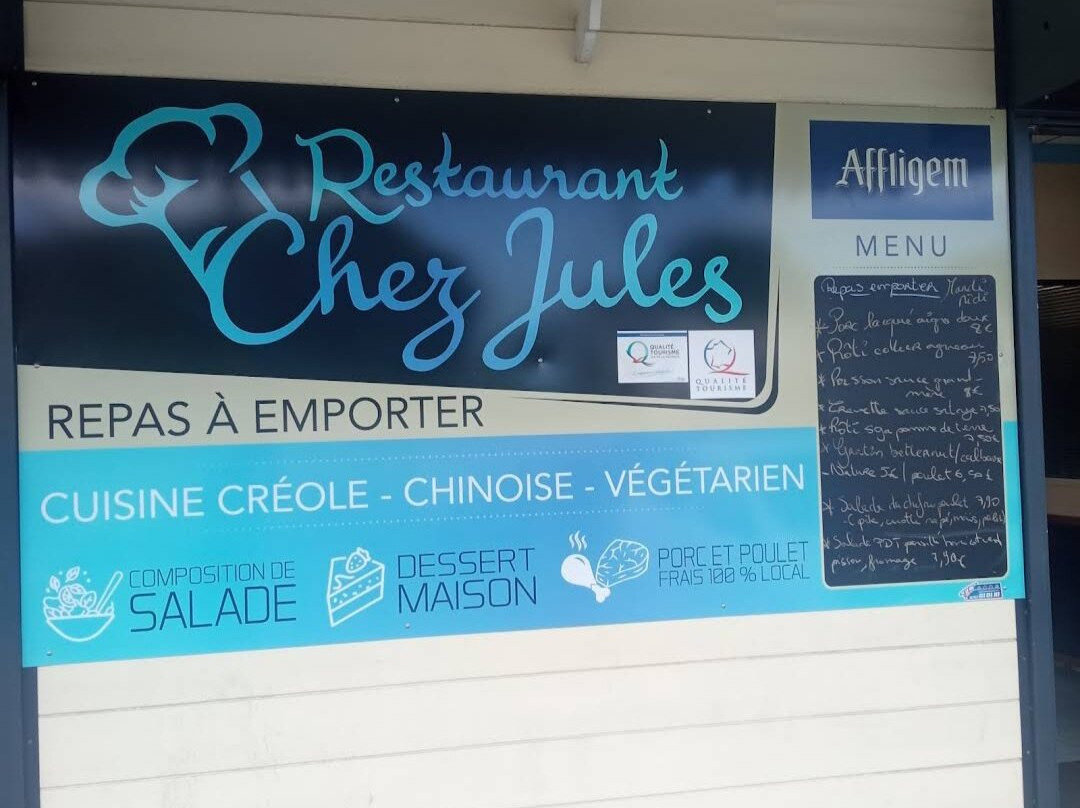 Restaurant
Chez Jules
QUALITÉ
TOURISME
QUALITÉ
TOURISME
REPAS À EMPORTER
CUISINE CRÉOLE - CHINOISE - VÉGÉTARIEN
COMPOSITION DE
SALADE
DESSERT
MAISON
PORC ET POULET
FRAIS 100 % LOCAL
Affligem
MENU
Repas emporter Mardi
midi
* Porc laqué aigre doux
8€
* Rôti
7,50
* Poisson sauce grand-
mère 8€
sauce 7,50
* Rôti soja pomme de terre
7,50€
* Gratin butternut/
- Nature 5€ / poulet 6,50€
* Salade du chef au poulet 7,90
* Salade
fromage 7,90€